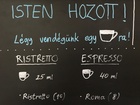 ISTEN HOZOTT!
Légy vendégünk egy ra!
RISTRETTO ESPRESSO
25 ml 40 ml
- Ristretto - Roma